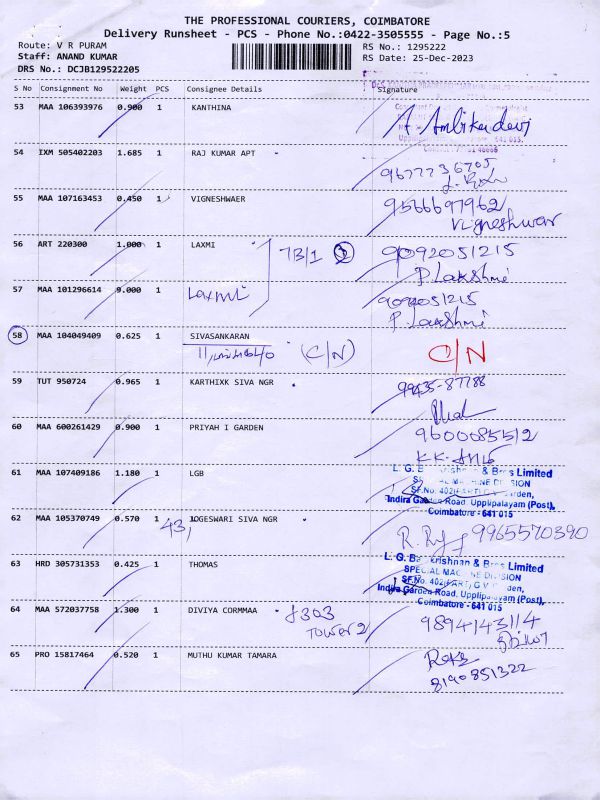 THE PROFESSIONAL COURIERS, COIMBATORE
Delivery Runsheet - PCS - Phone No.:0422-3505555 - Page No.:5
Route: V R PURAM
RS No.: 1295222
Staff: ANAND KUMAR
RS Date: 25-Dec-2023
DRS No.: DCJB129522205
S No Consignment No Weight PCS Consignee Details Signature
53 MAA 106393976 0.900 1 KANTHINA A. Ambika devi
Upplip 641 015.
54 IXM 505402203 1.685 1 RAJ KUMAR APT 9677736705
55 MAA 107163453 0.450 1 VIGNESHWAER 9566697962
Vigneshwar
56 ART 220300 1.000 1 LAXMI 7B/1 9092051215
P Lakshmi
57 MAA 101296614 9.000 1 Laxmi 9092051215
P. Lakshmi
58 MAA 104049409 0.625 1 SIVASANKARAN (C/N) C/N
59 TUT 950724 0.965 1 KARTHIXK SIVA NGR 99435-87788
60 MAA 600261429 0.900 1 PRIYAH I GARDEN 9600085512
61 MAA 107409186 1.180 1 LGB
L. G. B Krishnan & Bros Limited
SPECIAL MACHINE DIVISION
SF.No. 402(PART) G.V. Garden,
Indira Garden Road, Upplipalayam (Post),
Coimbatore - 641 015
62 MAA 105370749 0.570 1 43, JOGESWARI SIVA NGR 9965570390
63 HRD 305731353 0.425 1 THOMAS
L. G. Ba krishnan & Bros Limited
SPECIAL MACHINE DIVISION
SF.No. 402(PART) G.V. Garden,
Indira Garden Road, Upplipalayam (Post),
Coimbatore - 641 015
64 MAA 572037758 1.300 1 DIVIYA CORMMAA J303 9894143114
Tower 2
65 PRO 15817464 0.520 1 MUTHU KUMAR TAMARA
8190851322